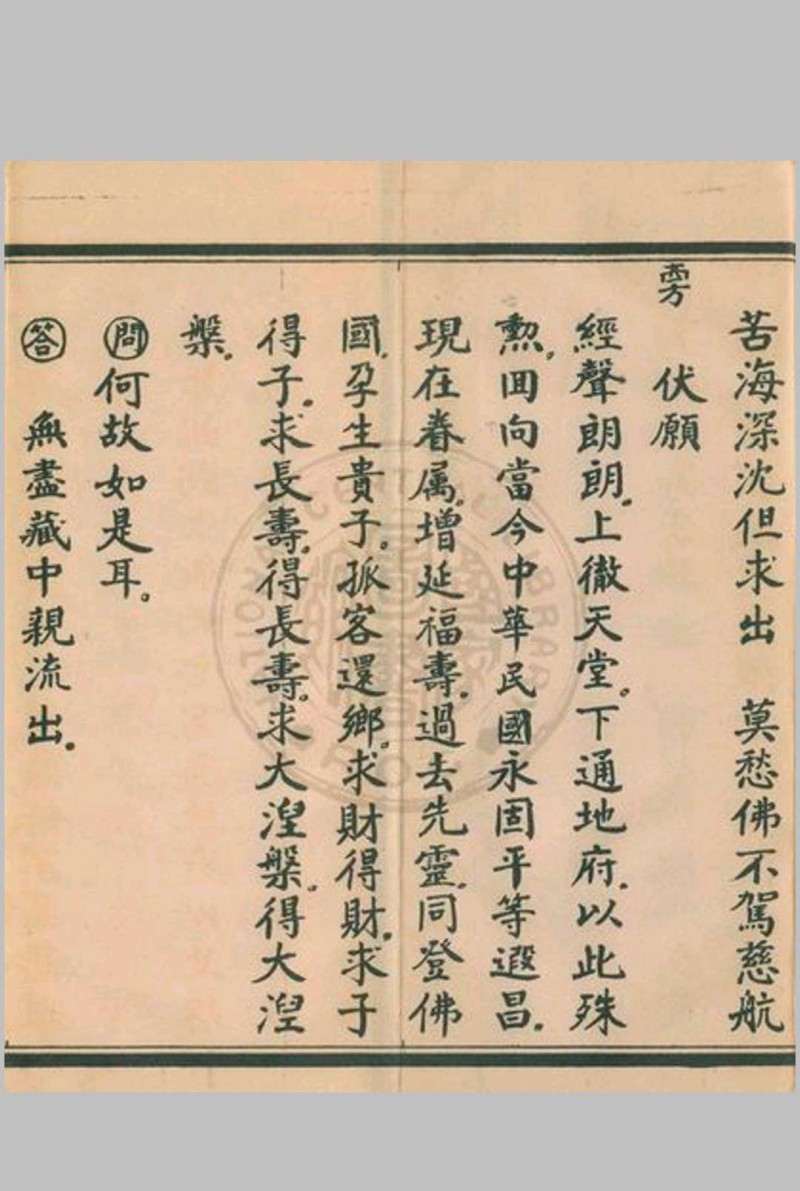 苦海深沈但求出　莫愁佛不駕慈航
雱　伏願
經聲朗朗。上徹天堂。下通地府。以此殊
勲。囬向當今中華民國永固平等遐昌。
現在眷属。增延福壽。過去先靈。同登佛
國。孕生貴子。孤客還鄉。求財得財。求子
得子。求長壽。得長壽。求大湼槃。得大湼
槃。
問何故如是耳。
答　無盡藏中親流出。